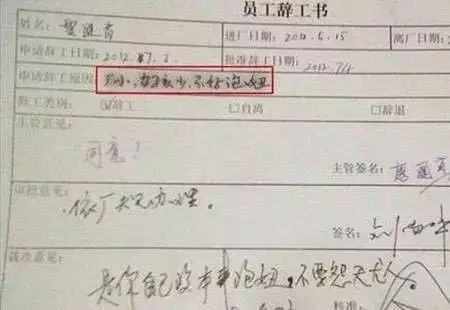 员工辞工书
姓名: 进厂日期: 离厂日期:
申请辞工日期: 2012. 批准辞工日期: 2012.7/4
申请辞工原因: 厂小,女孩太少,不好泡妞
辞工类别: ☑辞工 □自离 □辞退
主管意见:
同意!
主管签名:
审批意见:
依厂规办理。
签名:
是你自己没本事泡妞,不要怨天尤人。
核准: